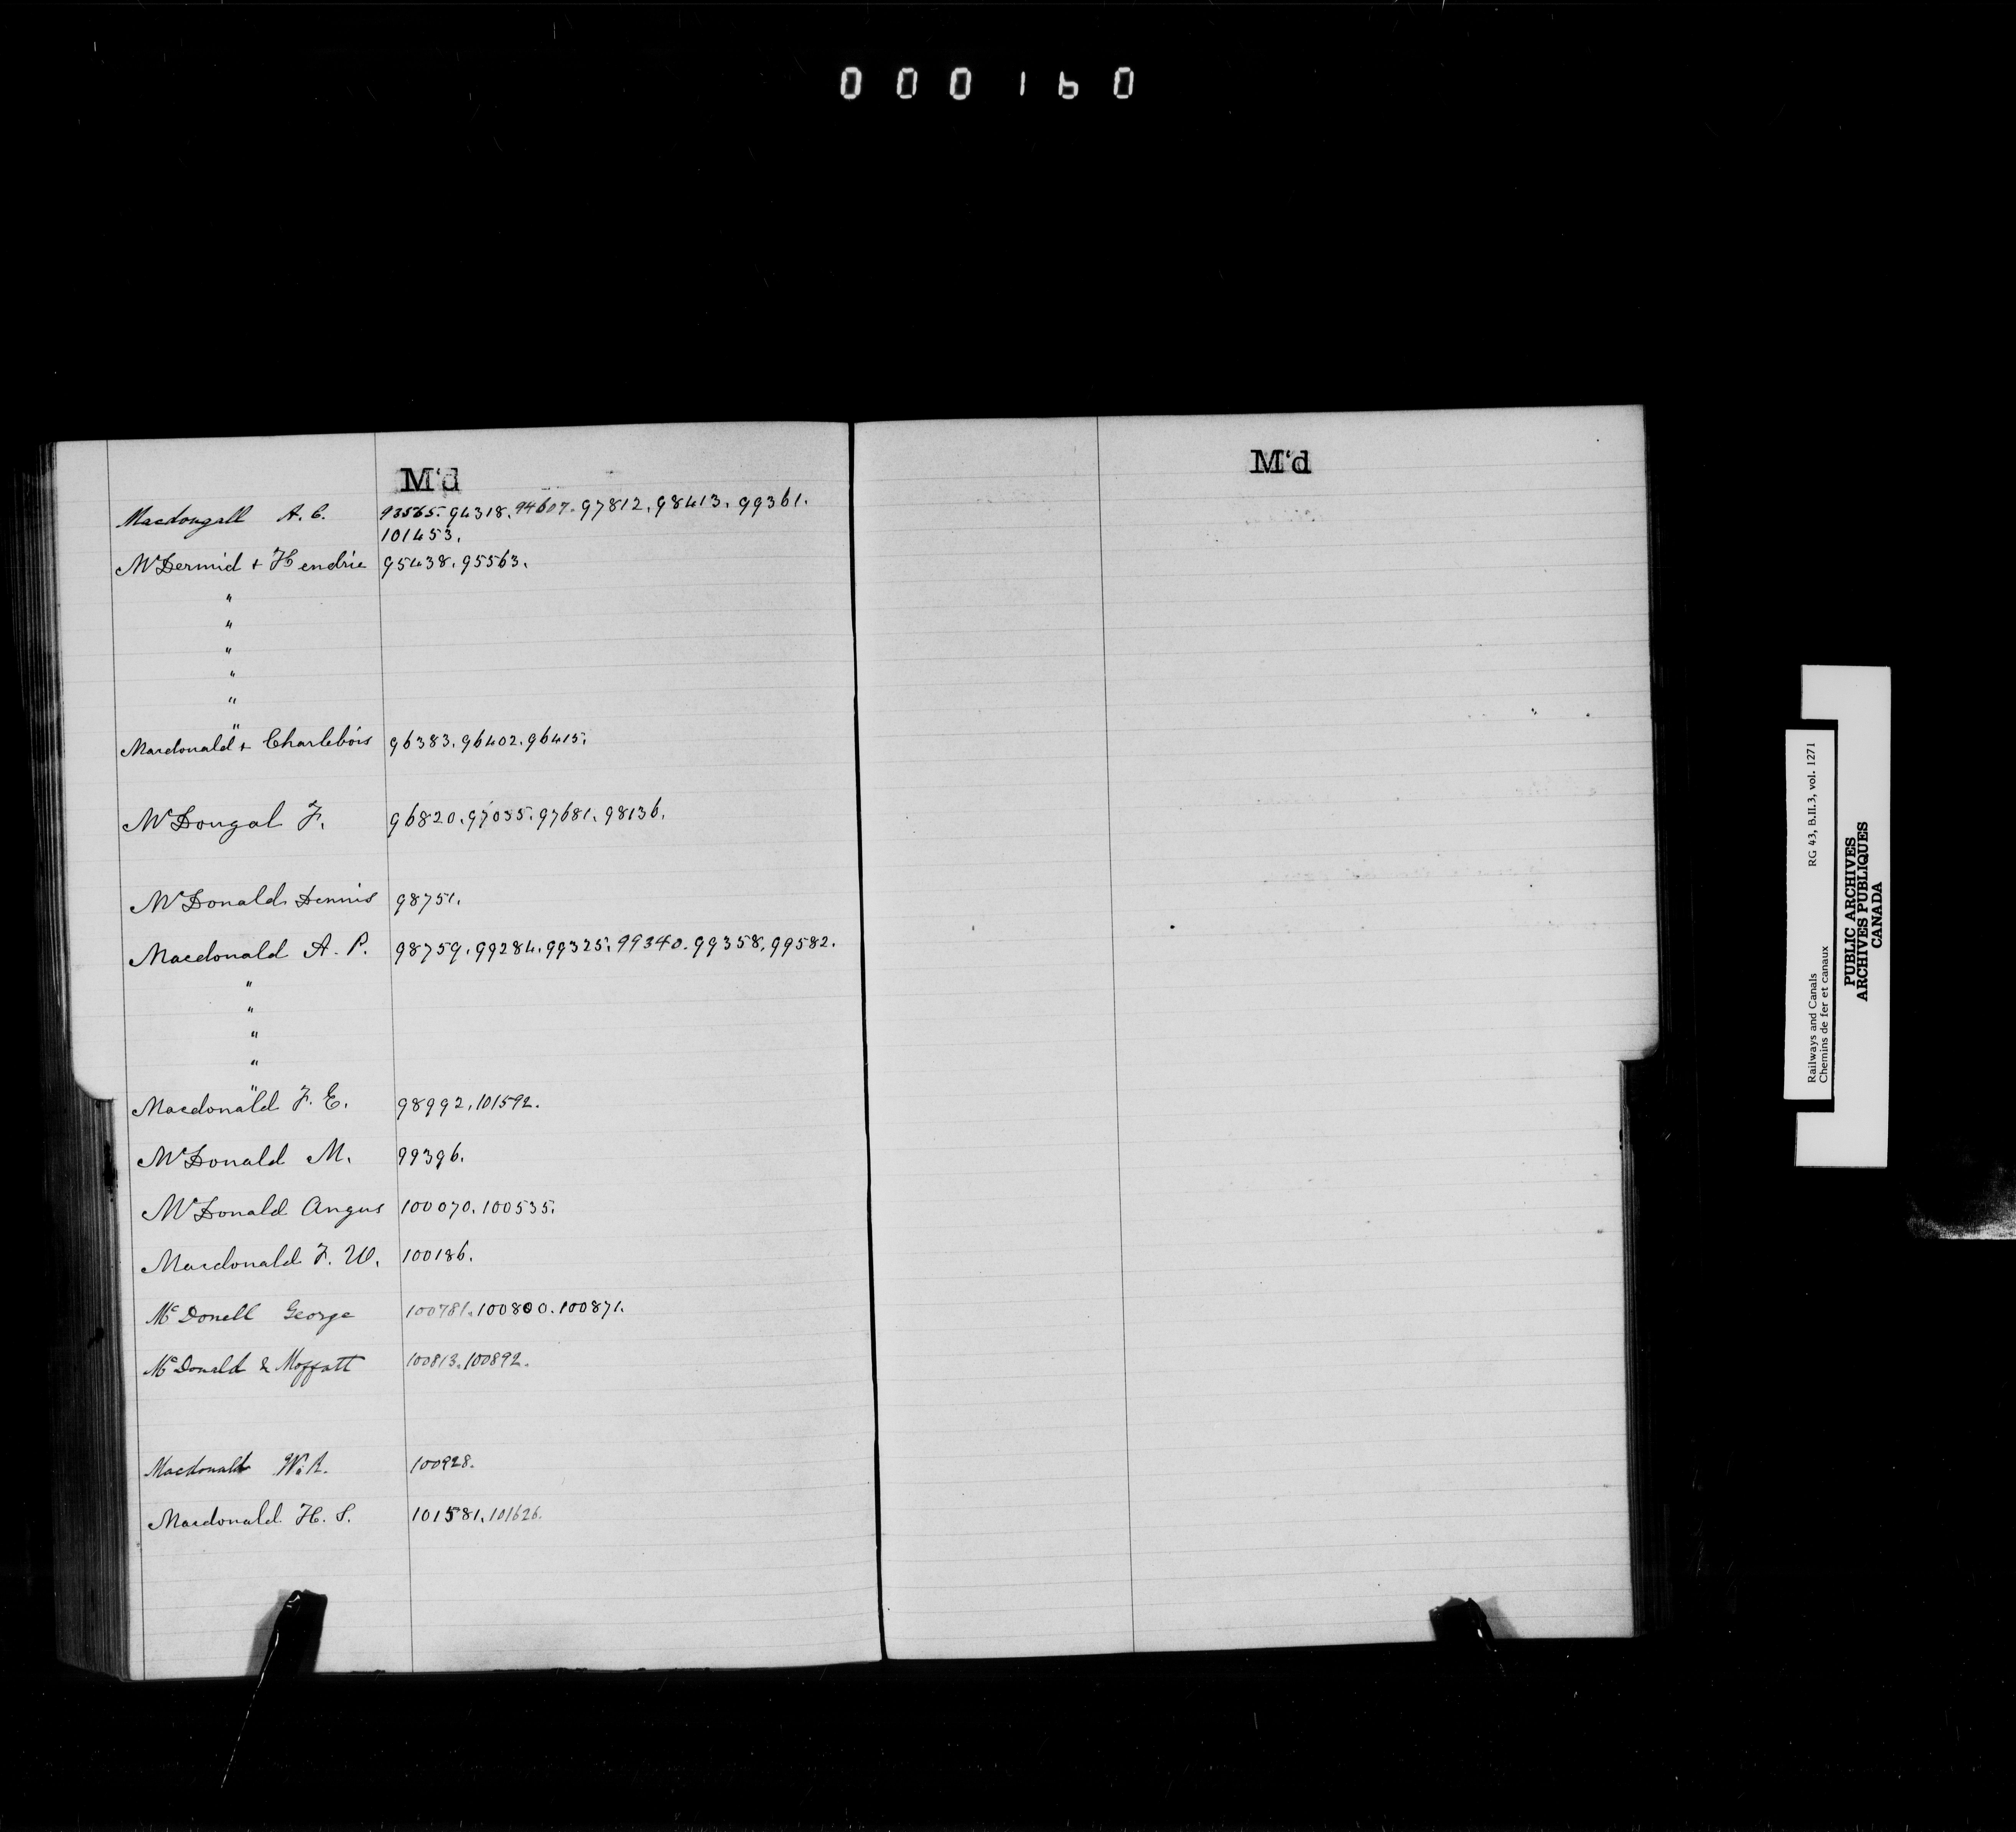 000160
M'd
Macdougall A. C. 93565. 94318. 94607. 97812. 98413. 99361.
101453.
McDermid + Hendrie 95438. 95563.
"
"
"
"
"
"
Macdonald + Charlebois 96383. 96402. 96415.
McDougal F. 96820. 97035. 97681. 98136.
McDonald Dennis 98751.
Macdonald A. P. 98759. 99284. 99325. 99340. 99358. 99582.
"
"
"
"
"
Macdonald F. E. 98992. 101592.
McDonald M. 99396.
McDonald Angus 100070. 100535.
Macdonald F. W. 100186.
McDonell George 100781. 100800. 100871.
McDonald & Moffatt 100813. 100892.
Macdonald W. A. 100928.
Macdonald H. S. 101581. 101626.
M'd
Railways and Canals RG 43, B.II.3, vol. 1271
Chemins de fer et canaux
PUBLIC ARCHIVES
ARCHIVES PUBLIQUES
CANADA